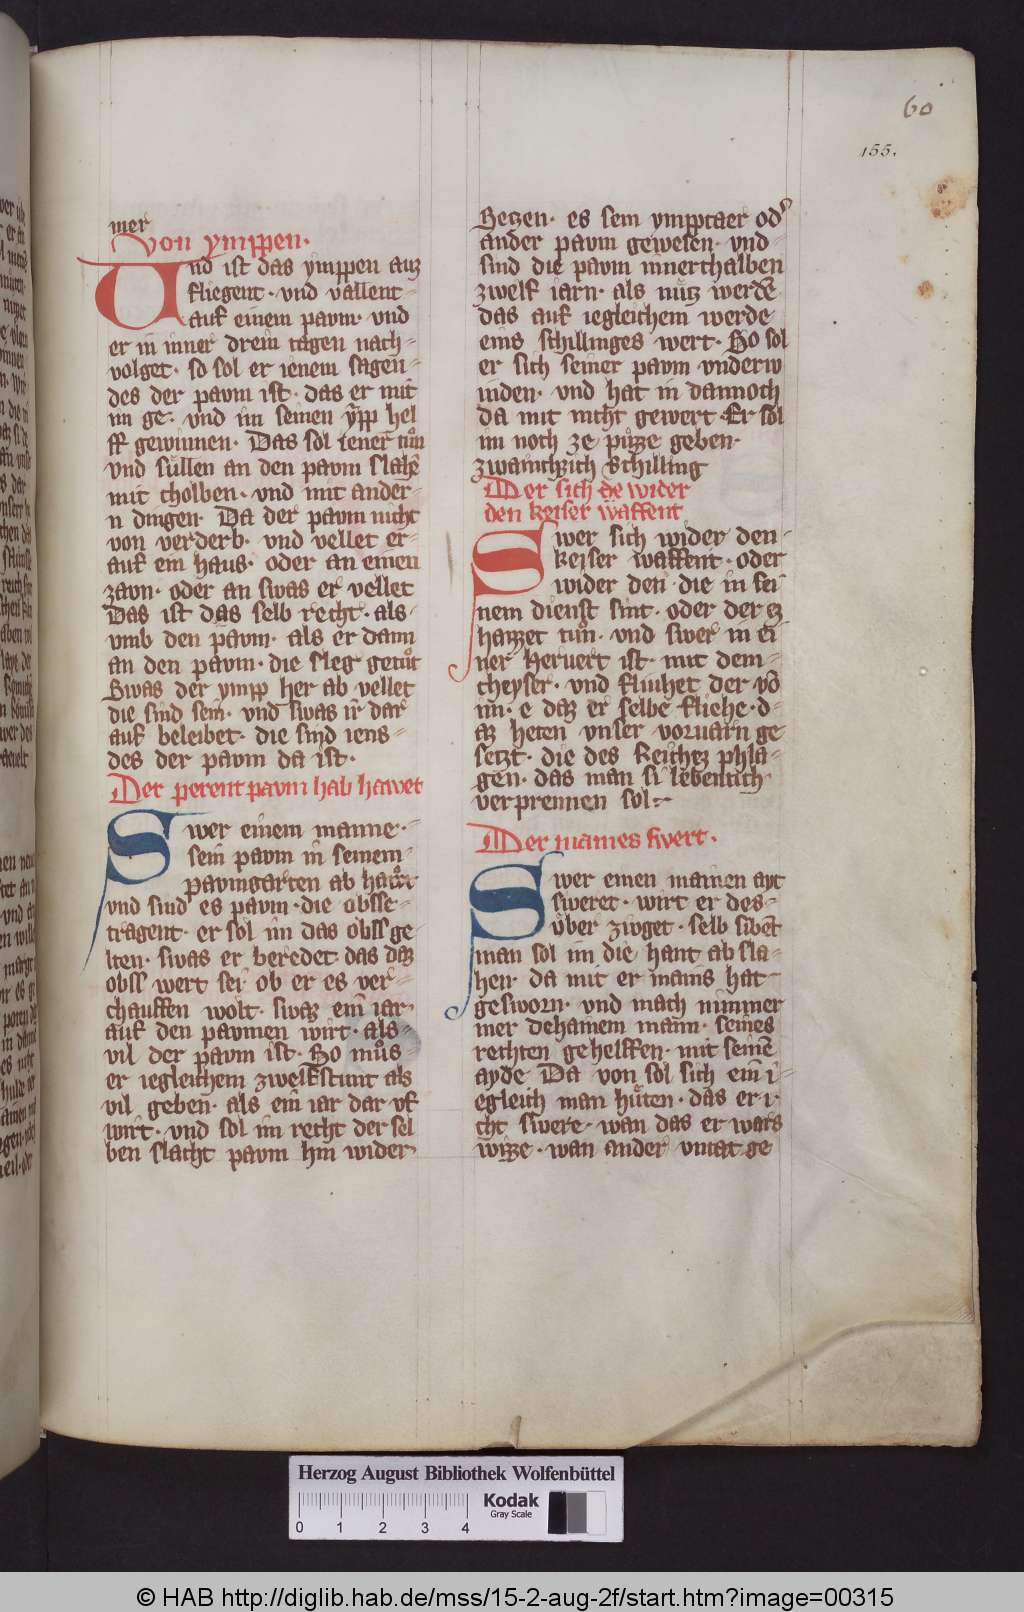 60
155.
mer
Von ymppen.
Und ist das ymppen auz
fliegent. vnd vallent
auf einem pavm. vnd
er in inner drein tagen nach-
volget. so sol er ienem sagen-
des der pavm ist. das er mit
im ge. vnd im seinen ypp hel
ff gewinnen. Das sol iener tuͦn
vnd suͤllen an den pavm slahē
mit cholben. vnd mit ander-
n dingen. Da der pavm nicht
von verderb. vnd vellet er-
auf ein haus. oder an einen
zavn. oder an swas er vellet
Das ist das selb recht. als-
vmb den pavm. als er dann
an den pavm. die sleg getuͦt
Swas der ympp her ab vellet
die sind sein. vnd swas ir dar
auf beleibet. die sind iens-
des der pavm da ist.
Der perent pavm hab hawet
Swer einem manne.
sein pavm in seinem-
Pavmgarten ab hawt
vnd sind es pavm. die obsse-
tragent. er sol im das obss ge
lten. swas er beredet das daz
obss wert sei. ob er es ver-
chauffen wolt. swaz ein iar.
auf den pavmen wirt. als-
vil der pavm ist. So muͦs-
er iegleichem zwelfstunt als
vil geben. als ein iar dar vf
wirt. vnd sol im recht der sel
ben slacht pavm hin wider
Setzen. es sein ympptaer od'
ander pavm gewesen. vnd-
sind die pavm innerthalben
zwelf iarn. als nuͤtz werdē
das auf iegleichem werde
eins schillinges wert. So sol
er sich seiner pavm vnderw
inden. vnd hat in dannoch
da mit nicht gewert. Er sol
im noch ze puͦzze geben.
zwaintzich Schilling
Der sich de wider
den keiser waffent
Swer sich wider den-
keiser waffent. oder
wider den die in sei
nem dienst sint. oder der ez
hazzet tuͦn. vnd swer in ei
ner Heruert ist. mit dem-
cheyser. vnd fliuhet der vō
im. e daz er selbe fliehe. d-
az heten vnser voruarn ge
setzt. die des Reichez phla-
gen. das man si lebentich
verprennen sol.
Der maines swert.
Swer einen mainen ayt
sweret. wirt er des-
uͤber zivget. selb sibēt
man sol im die hant ab sla-
hen. da mit er mains hat
gesworn. vnd mach nimmer
mer dehainem mann. seines
rechten gehelffen. mit seinē
ayde Da von sol sich ein i-
egleich man huͤten. das er i.
cht swere. wan das er wars
wizze. wan ander vntat ge
Herzog August Bibliothek Wolfenbüttel
Kodak
Gray Scale
0 1 2 3 4
© HAB http://diglib.hab.de/mss/15-2-aug-2f/start.htm?image=00315